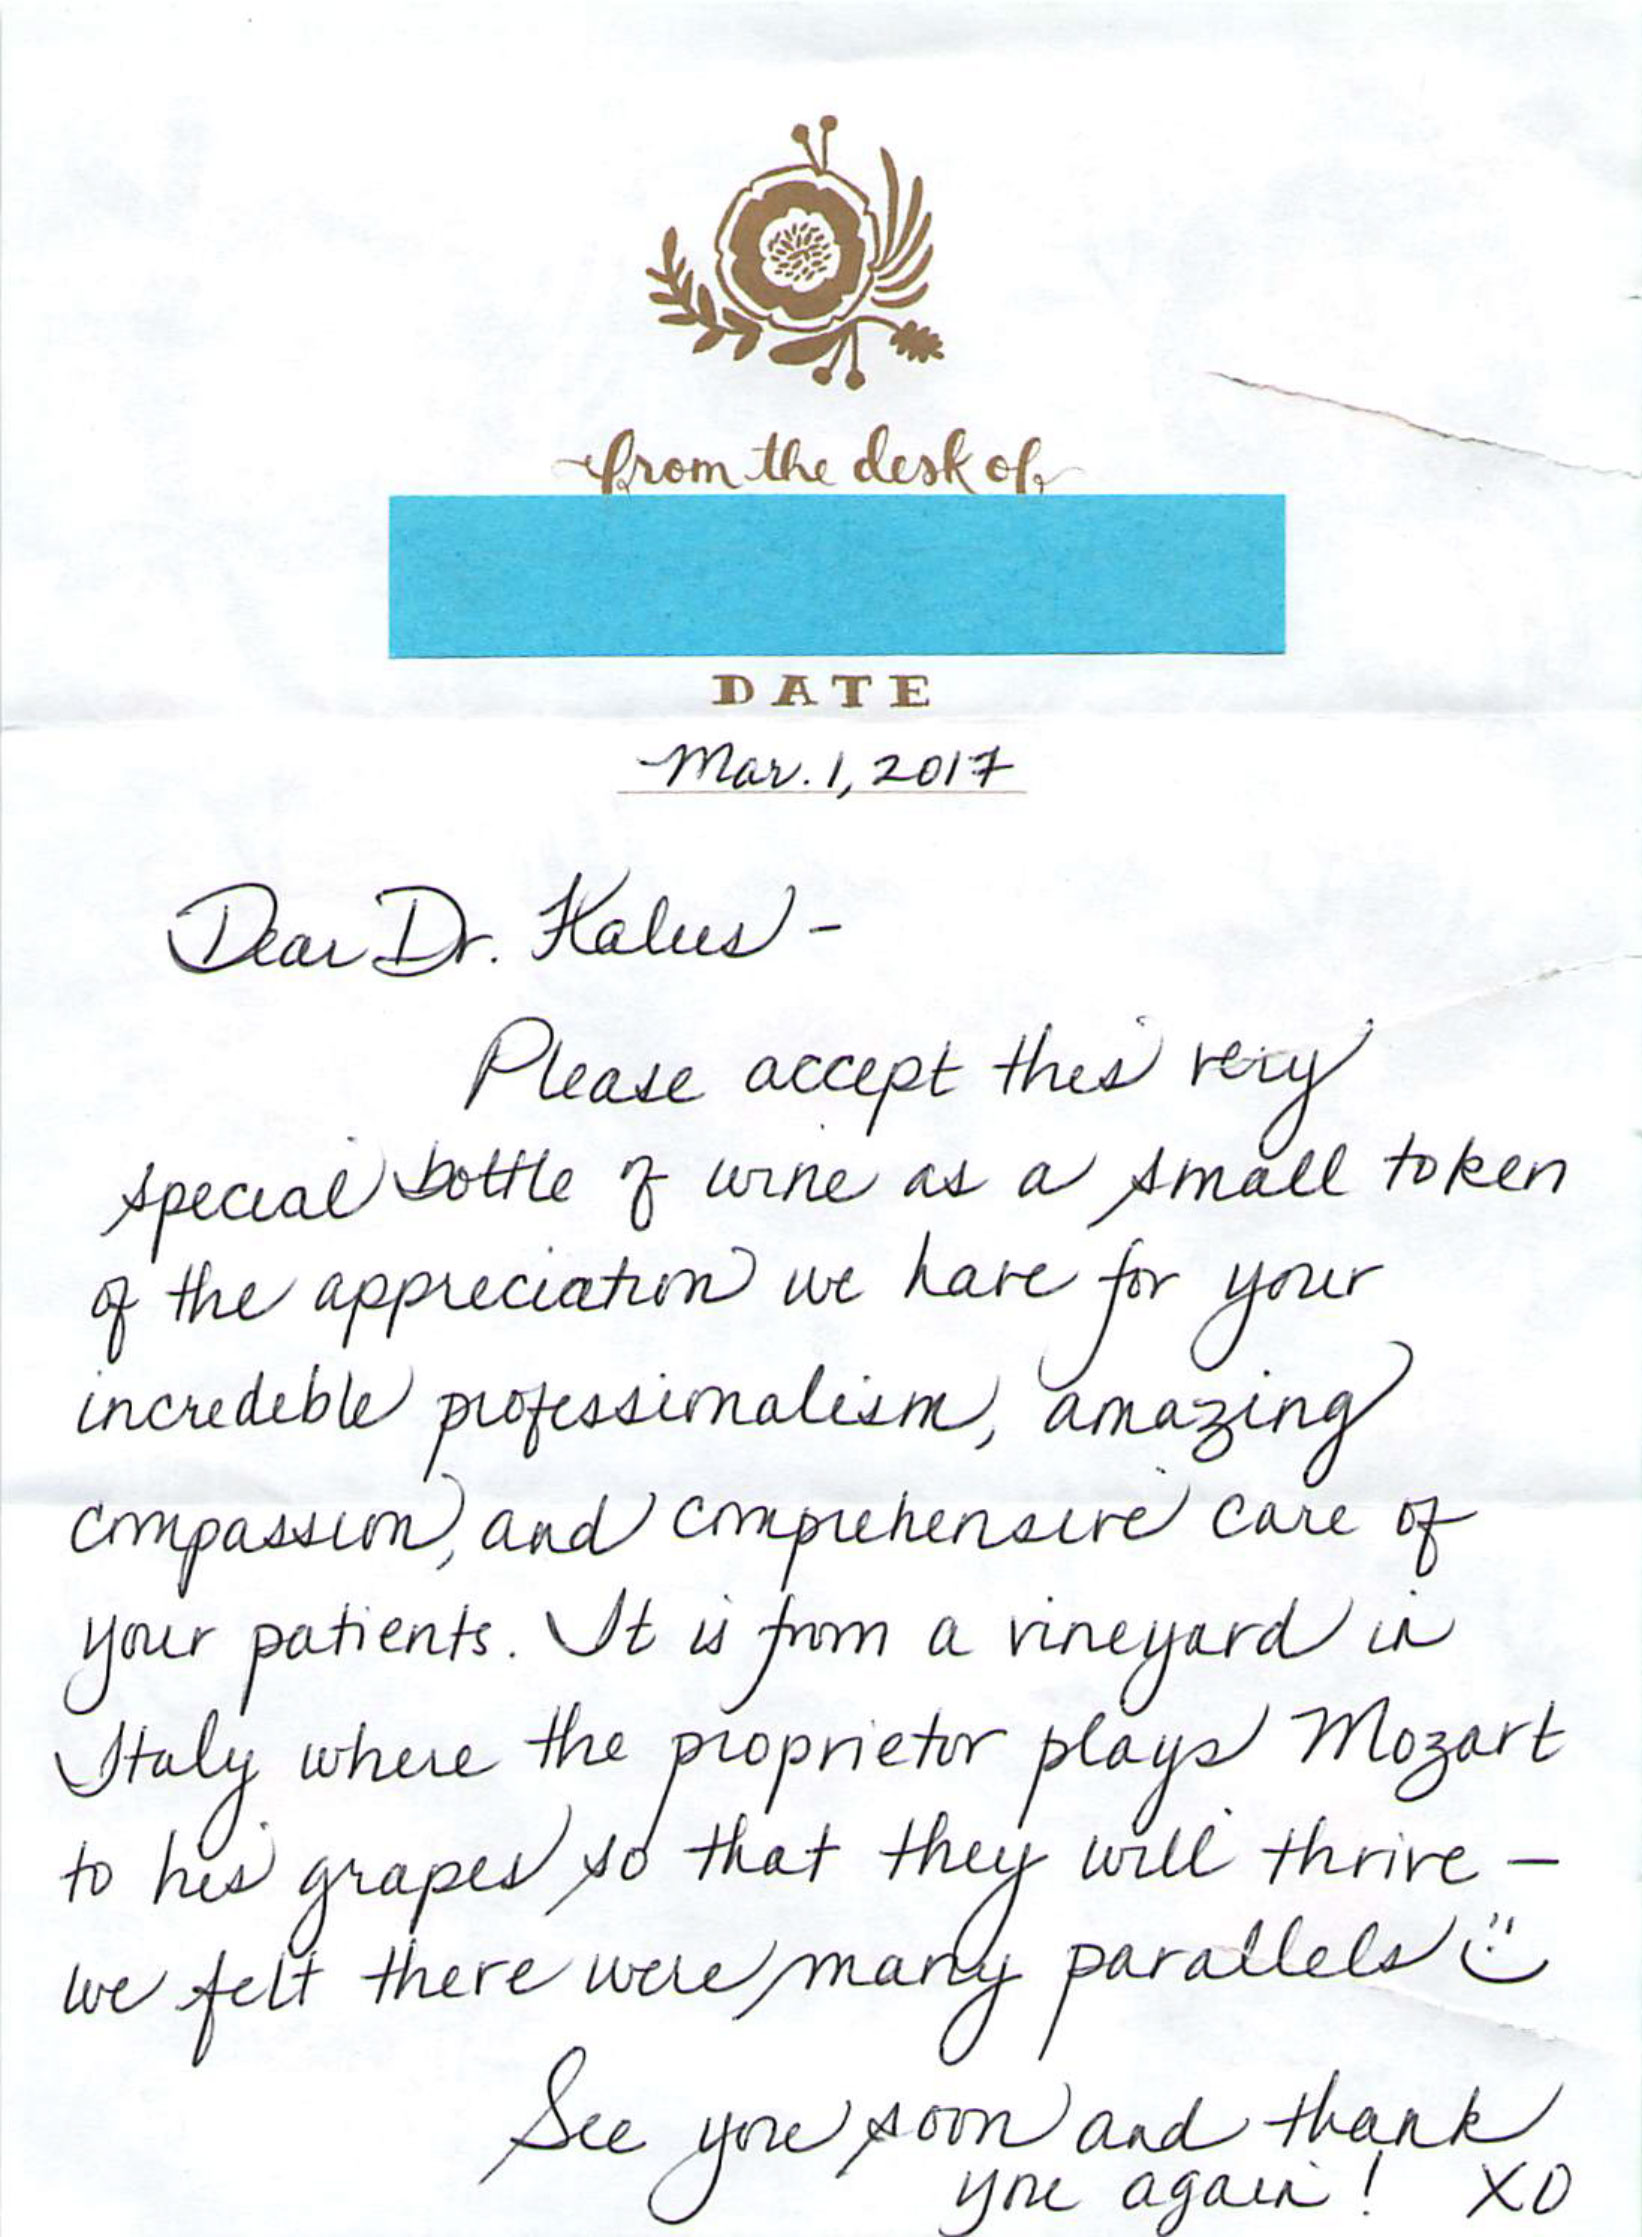 from the desk of
DATE
Mar. 1, 2017
Dear Dr. Kalus -
Please accept this very
special bottle of wine as a small token
of the appreciation we have for your
incredible professionalism, amazing
compassion, and comprehensive care of
your patients. It is from a vineyard in
Italy where the proprietor plays Mozart
to his grapes so that they will thrive —
we felt there were many parallels
See you soon and thank
you again! XO